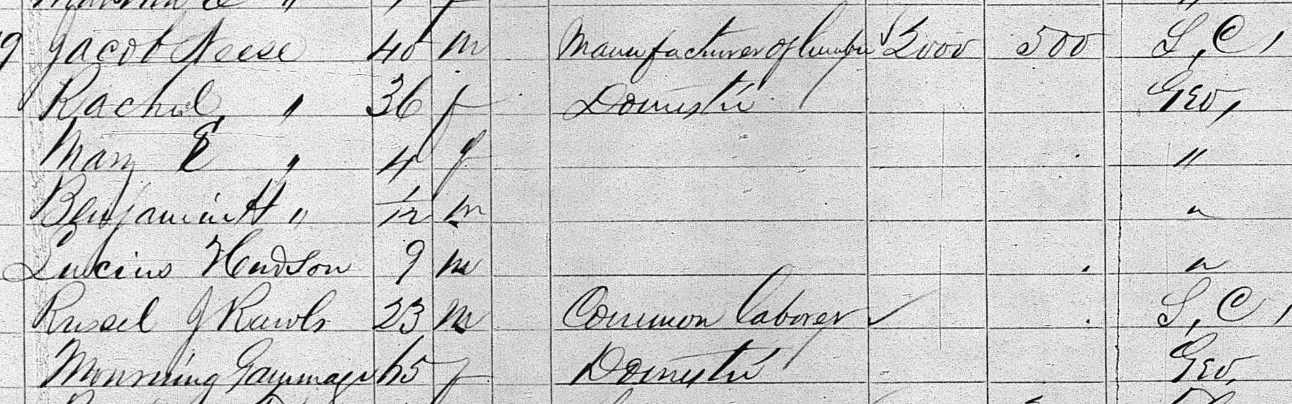 9 Jacob Neese 40 m Manufacturer of lumber $2000 500 S, C,
Rachel, " 36 f Domestic Geo,
Mary E " 4 f "
Benjamin H " 1/12 m "
Lucius Hudson 9 m "
Russel J Rawls 23 m Common laborer S, C,
Mourning Gammage 65 f Domestic Geo,